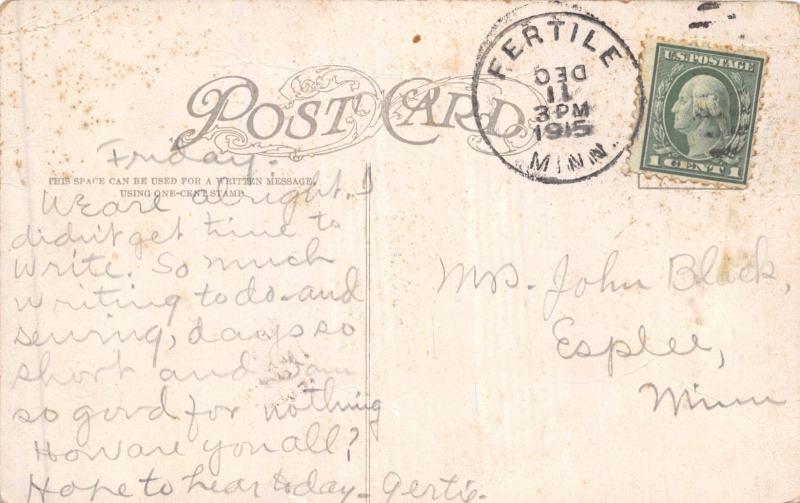 POST CARD
FERTILE
DEC
11
3 PM
1915
MINN.
U.S. POSTAGE
1 CENT 1
THIS SPACE CAN BE USED FOR A WRITTEN MESSAGE,
USING ONE-CENT STAMP.
Friday.
We are alright. I
didn't get time to
write. So much
writing to do and
sewing, days so
short and I am
so good for nothing
How are you all?
Hope to hear today - Gertie.
Mrs. John Black,
Esplee,
Minn